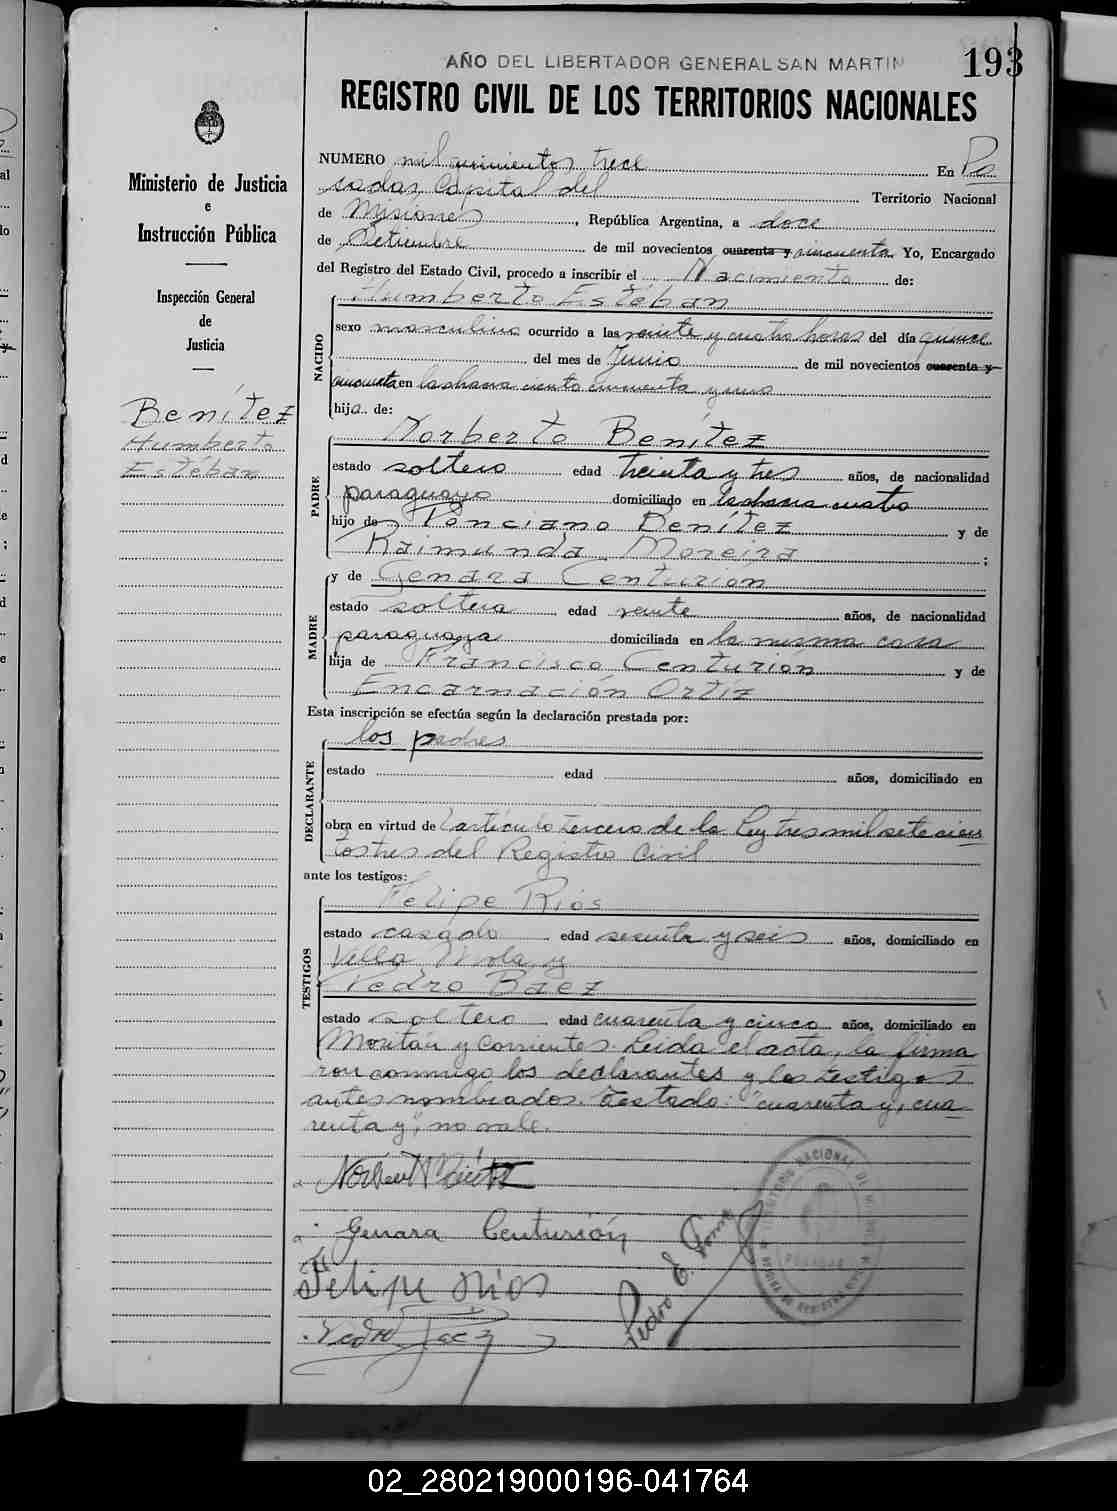 AÑO DEL LIBERTADOR GENERAL SAN MARTIN
193
REGISTRO CIVIL DE LOS TERRITORIOS NACIONALES
Ministerio de Justicia
e
Instrucción Pública
Inspección General
de
Justicia
Benítez
Humberto
Estéban
NUMERO mil quinientos trece En Po
sadas, Capital del Territorio Nacional
de Misiones, República Argentina, a doce
de Setiembre de mil novecientos cuarenta y cincuenta Yo, Encargado
del Registro del Estado Civil, procedo a inscribir el Nacimiento de:
Humberto Estéban
NACIDO
sexo masculino ocurrido a las veinte y cuatro horas del día quince
del mes de Junio de mil novecientos cuarenta y
cincuenta en la chacra ciento cincuenta y uno
hijo de:
Norberto Benítez
PADRE
estado soltero edad treinta y tres años, de nacionalidad
paraguayo domiciliado en la chacra cuatro
hijo de Ponciano Benítez y de
Raimunda Moreira ;
y de Genara Centurión
MADRE
estado soltera edad veinte años, de nacionalidad
paraguaya domiciliada en la misma casa
hija de Francisco Centurión y de
Encarnación Ortíz
Esta inscripción se efectúa según la declaración prestada por:
los padres
DECLARANTE
estado edad años, domiciliado en
obra en virtud del artículo tercero de la Ley tres mil sete cien
tos tres del Registro Civil
ante los testigos:
Felipe Rios
TESTIGOS
estado casado edad sesenta y seis años, domiciliado en
Villa y
Pedro Baez
estado soltero edad cuarenta y cinco años, domiciliado en
y Corrientes. Leida el acta, la firma
ron conmigo los declarantes y los testigos
antes nombrados. Testado: "cuarenta y, cua
renta y", no vale.
Genara Centurión
Felipe Rios
Pedro Baez
Pedro E.
02_280219000196-041764